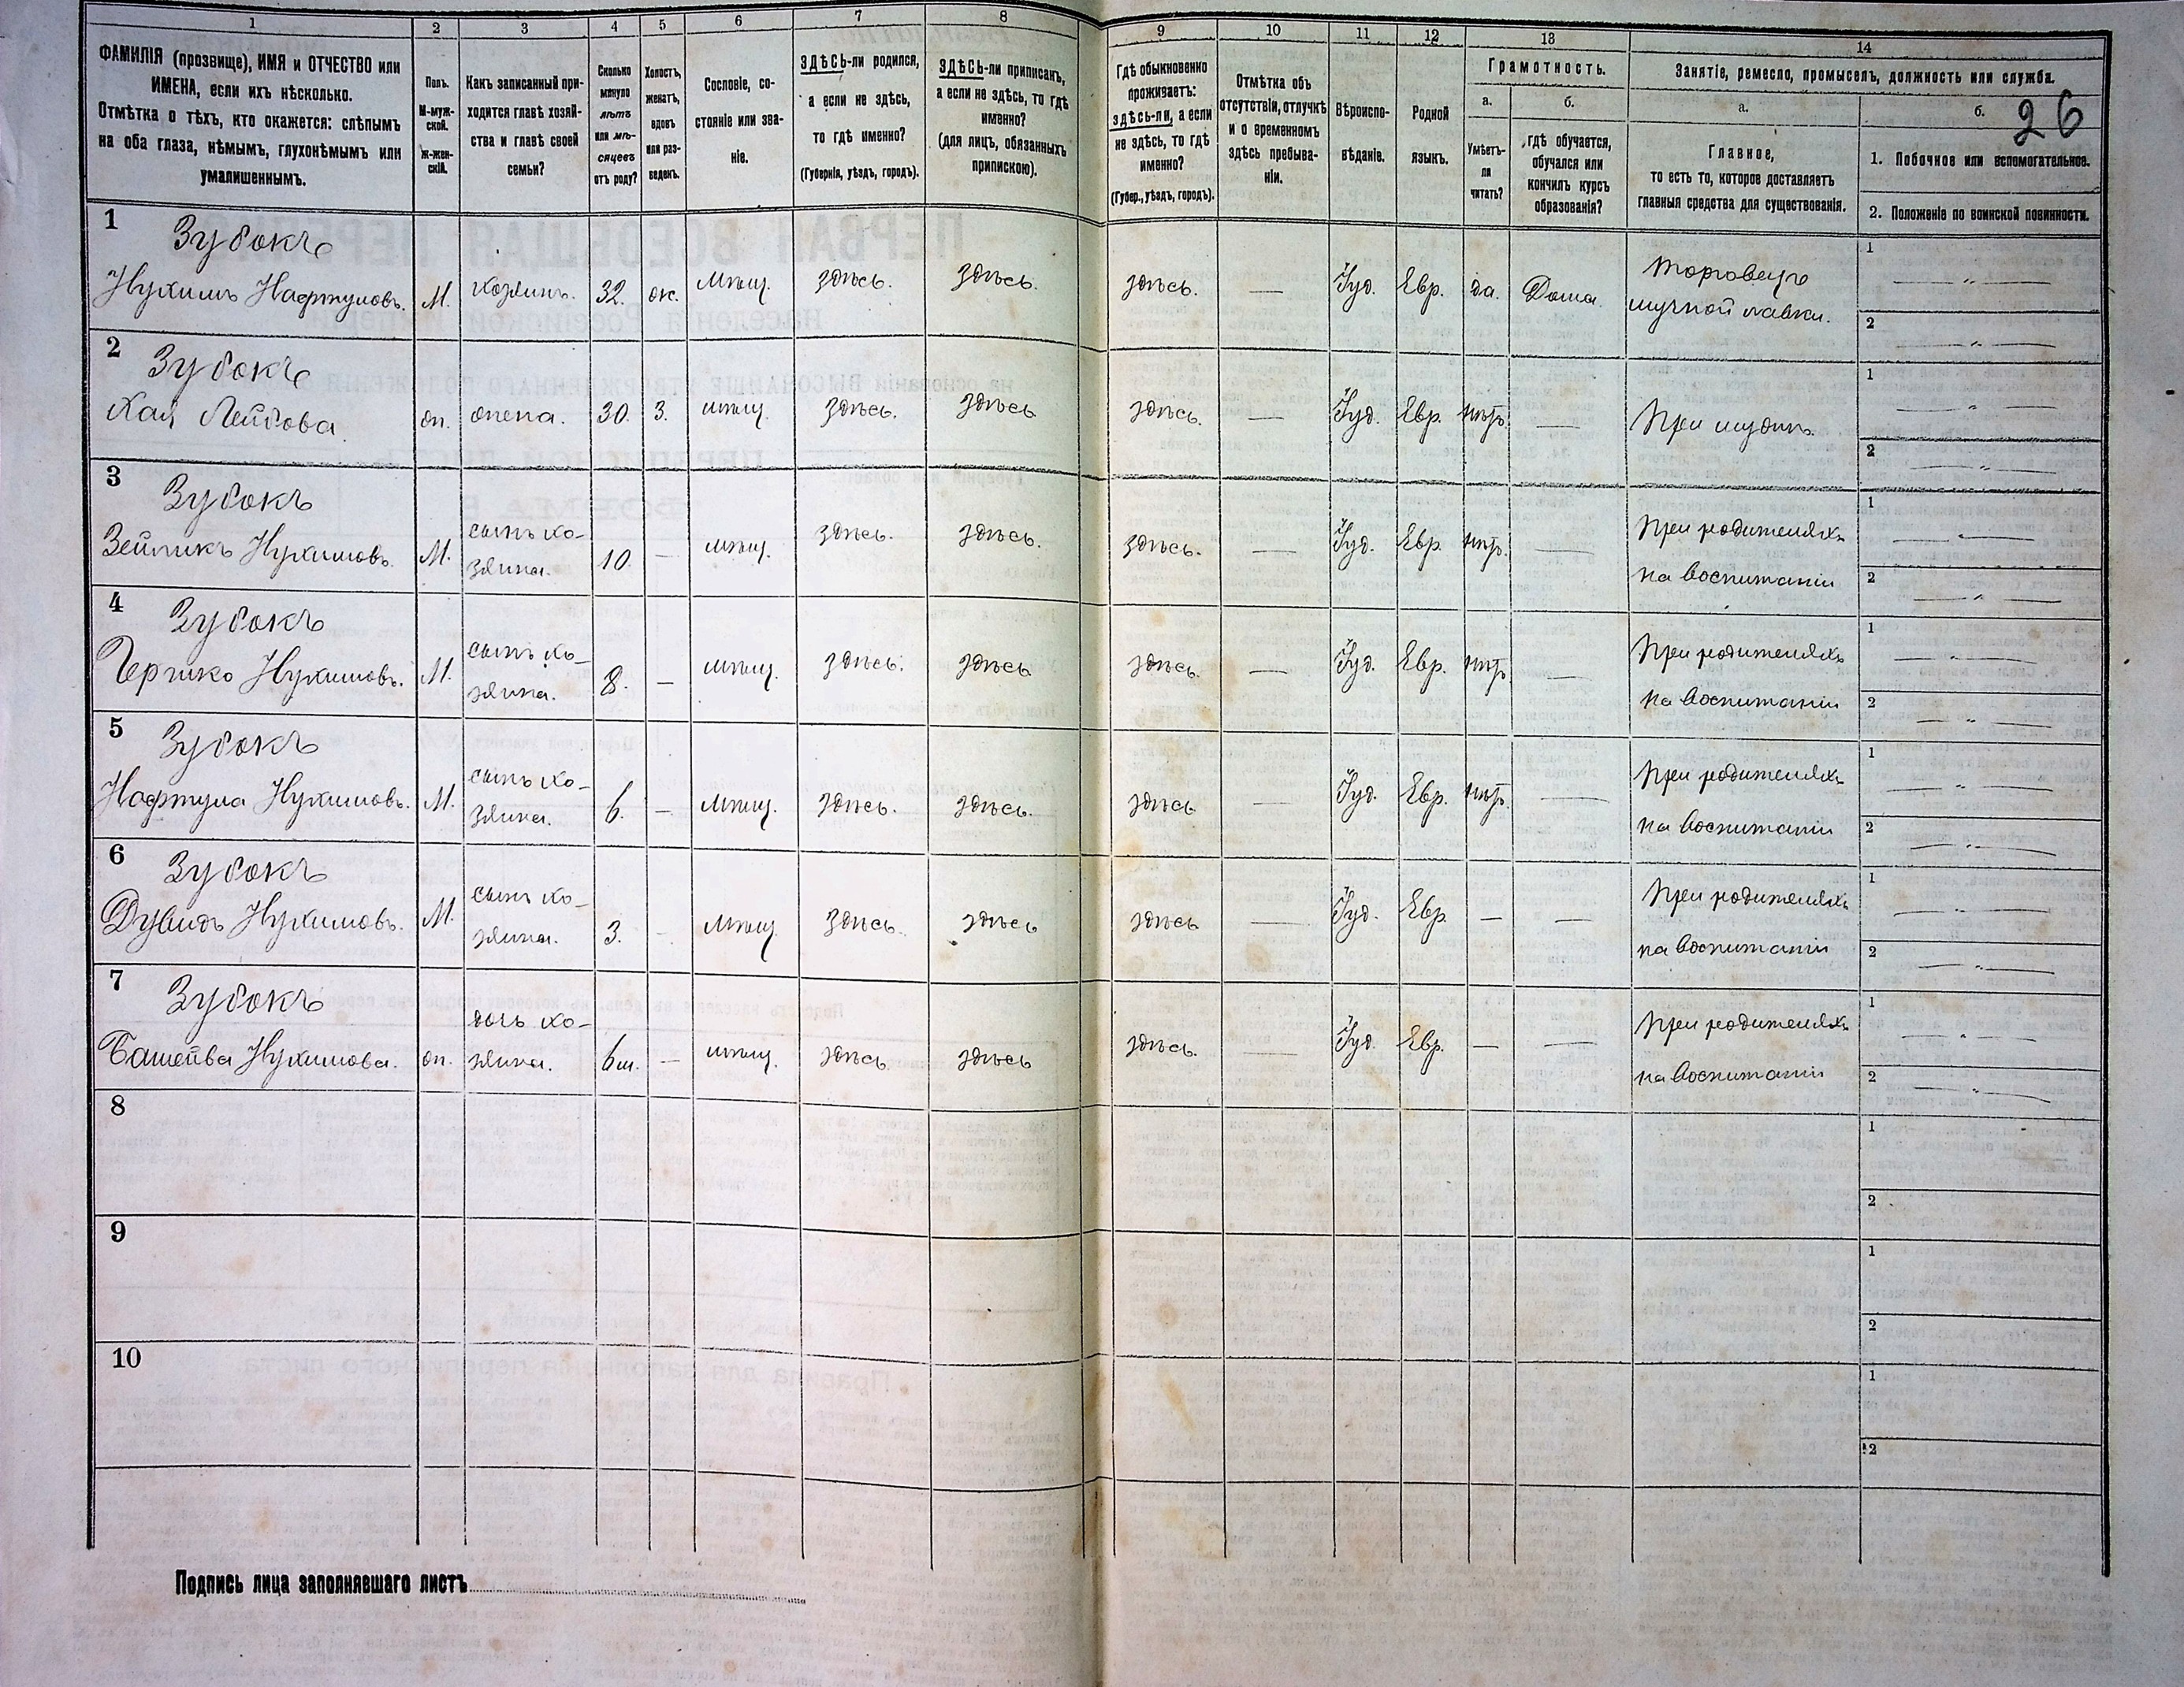 1 2 3 4 5 6 7 8 9 10 11 12 13 14
ФАМИЛІЯ (прозвище), ИМЯ и ОТЧЕСТВО или
ИМЕНА, если ихъ нѣсколько.
Отмѣтка о тѣхъ, кто окажется: слѣпымъ
на оба глаза, нѣмымъ, глухонѣмымъ или
умалишеннымъ.
Полъ.
М-муж-
ской.
Ж-жен-
скій.
Какъ записанный при-
ходится главѣ хозяй-
ства и главѣ своей
семьи?
Сколько
минуло
лѣтъ
или мѣ-
сяцевъ
отъ роду?
Холостъ,
женатъ,
вдовъ
или раз-
веденъ.
Сословіе, со-
стояніе или зва-
ніе.
ЗДѢСЬ-ли родился,
а если не здѣсь,
то гдѣ именно?
(Губернія, уѣздъ, городъ).
ЗДѢСЬ-ли приписанъ,
а если не здѣсь, то гдѣ
именно?
(для лицъ, обязанныхъ
припискою).
Гдѣ обыкновенно
проживаетъ:
здѣсь-ли, а если
не здѣсь, то гдѣ
именно?
(Губер., уѣздъ, городъ).
Отмѣтка объ
отсутствіи, отлучкѣ
и о временномъ
здѣсь пребыва-
ніи.
Вѣроиспо-
вѣданіе.
Родной
языкъ.
Грамотность.
а.
Умѣетъ-
ли
читать?
б.
гдѣ обучается,
обучался или
кончилъ курсъ
образованія?
Занятіе, ремесло, промыселъ, должность или служба.
а.
Главное,
то есть то, которое доставляетъ
главныя средства для существованія.
б.
26
1. Побочное или вспомогательное.
2. Положеніе по воинской повинности.
1 Зубокъ
Нухимъ Нафтуловъ. М. хозяинъ. 32. ж. Мѣщ. здѣсь. здѣсь. здѣсь. — Іуд. Евр. да. Дома. торговецъ
мучной лавки.
1 — " —
2 — " —
2 Зубокъ
Хая Лейбова. ж. жена. 30. З. мѣщ. здѣсь. здѣсь здѣсь. — Іуд. Евр. нѣтъ. — При мужѣ.
1 — " —
2 — " —
3 Зубокъ
Зейликъ Нухимовъ. М. сынъ хо-
зяина. 10. — мѣщ. здѣсь. здѣсь. здѣсь. — Іуд. Евр. нѣтъ. — При родителяхъ
на воспитаніи
1 — " —
2 — " —
4 Зубокъ
Гершко Нухимовъ. М. сынъ хо-
зяина. 8. — мѣщ. здѣсь. здѣсь здѣсь. — Іуд. Евр. нѣтъ. — При родителяхъ
на воспитаніи
1 — " —
2 — " —
5 Зубокъ
Нафтула Нухимовъ. М. сынъ хо-
зяина. 6. — мѣщ. здѣсь. здѣсь. здѣсь — Іуд. Евр. нѣтъ. — При родителяхъ
на воспитаніи
1 — " —
2 — " —
6 Зубокъ
Дувидъ Нухимовъ. М. сынъ хо-
зяина. 3. - Мѣщ. здѣсь. здѣсь здѣсь — Іуд. Евр. — — При родителяхъ
на воспитаніи
1 — " —
2 — " —
7 Зубокъ
Башейва Нухимова. ж. дочь хо-
зяина. 6м. — мѣщ. здѣсь здѣсь здѣсь. — Іуд. Евр. — — При родителяхъ
на воспитаніи
1 — " —
2 — " —
8
1
2
9
1
2
10
1
2
Подпись лица заполнявшаго листъ